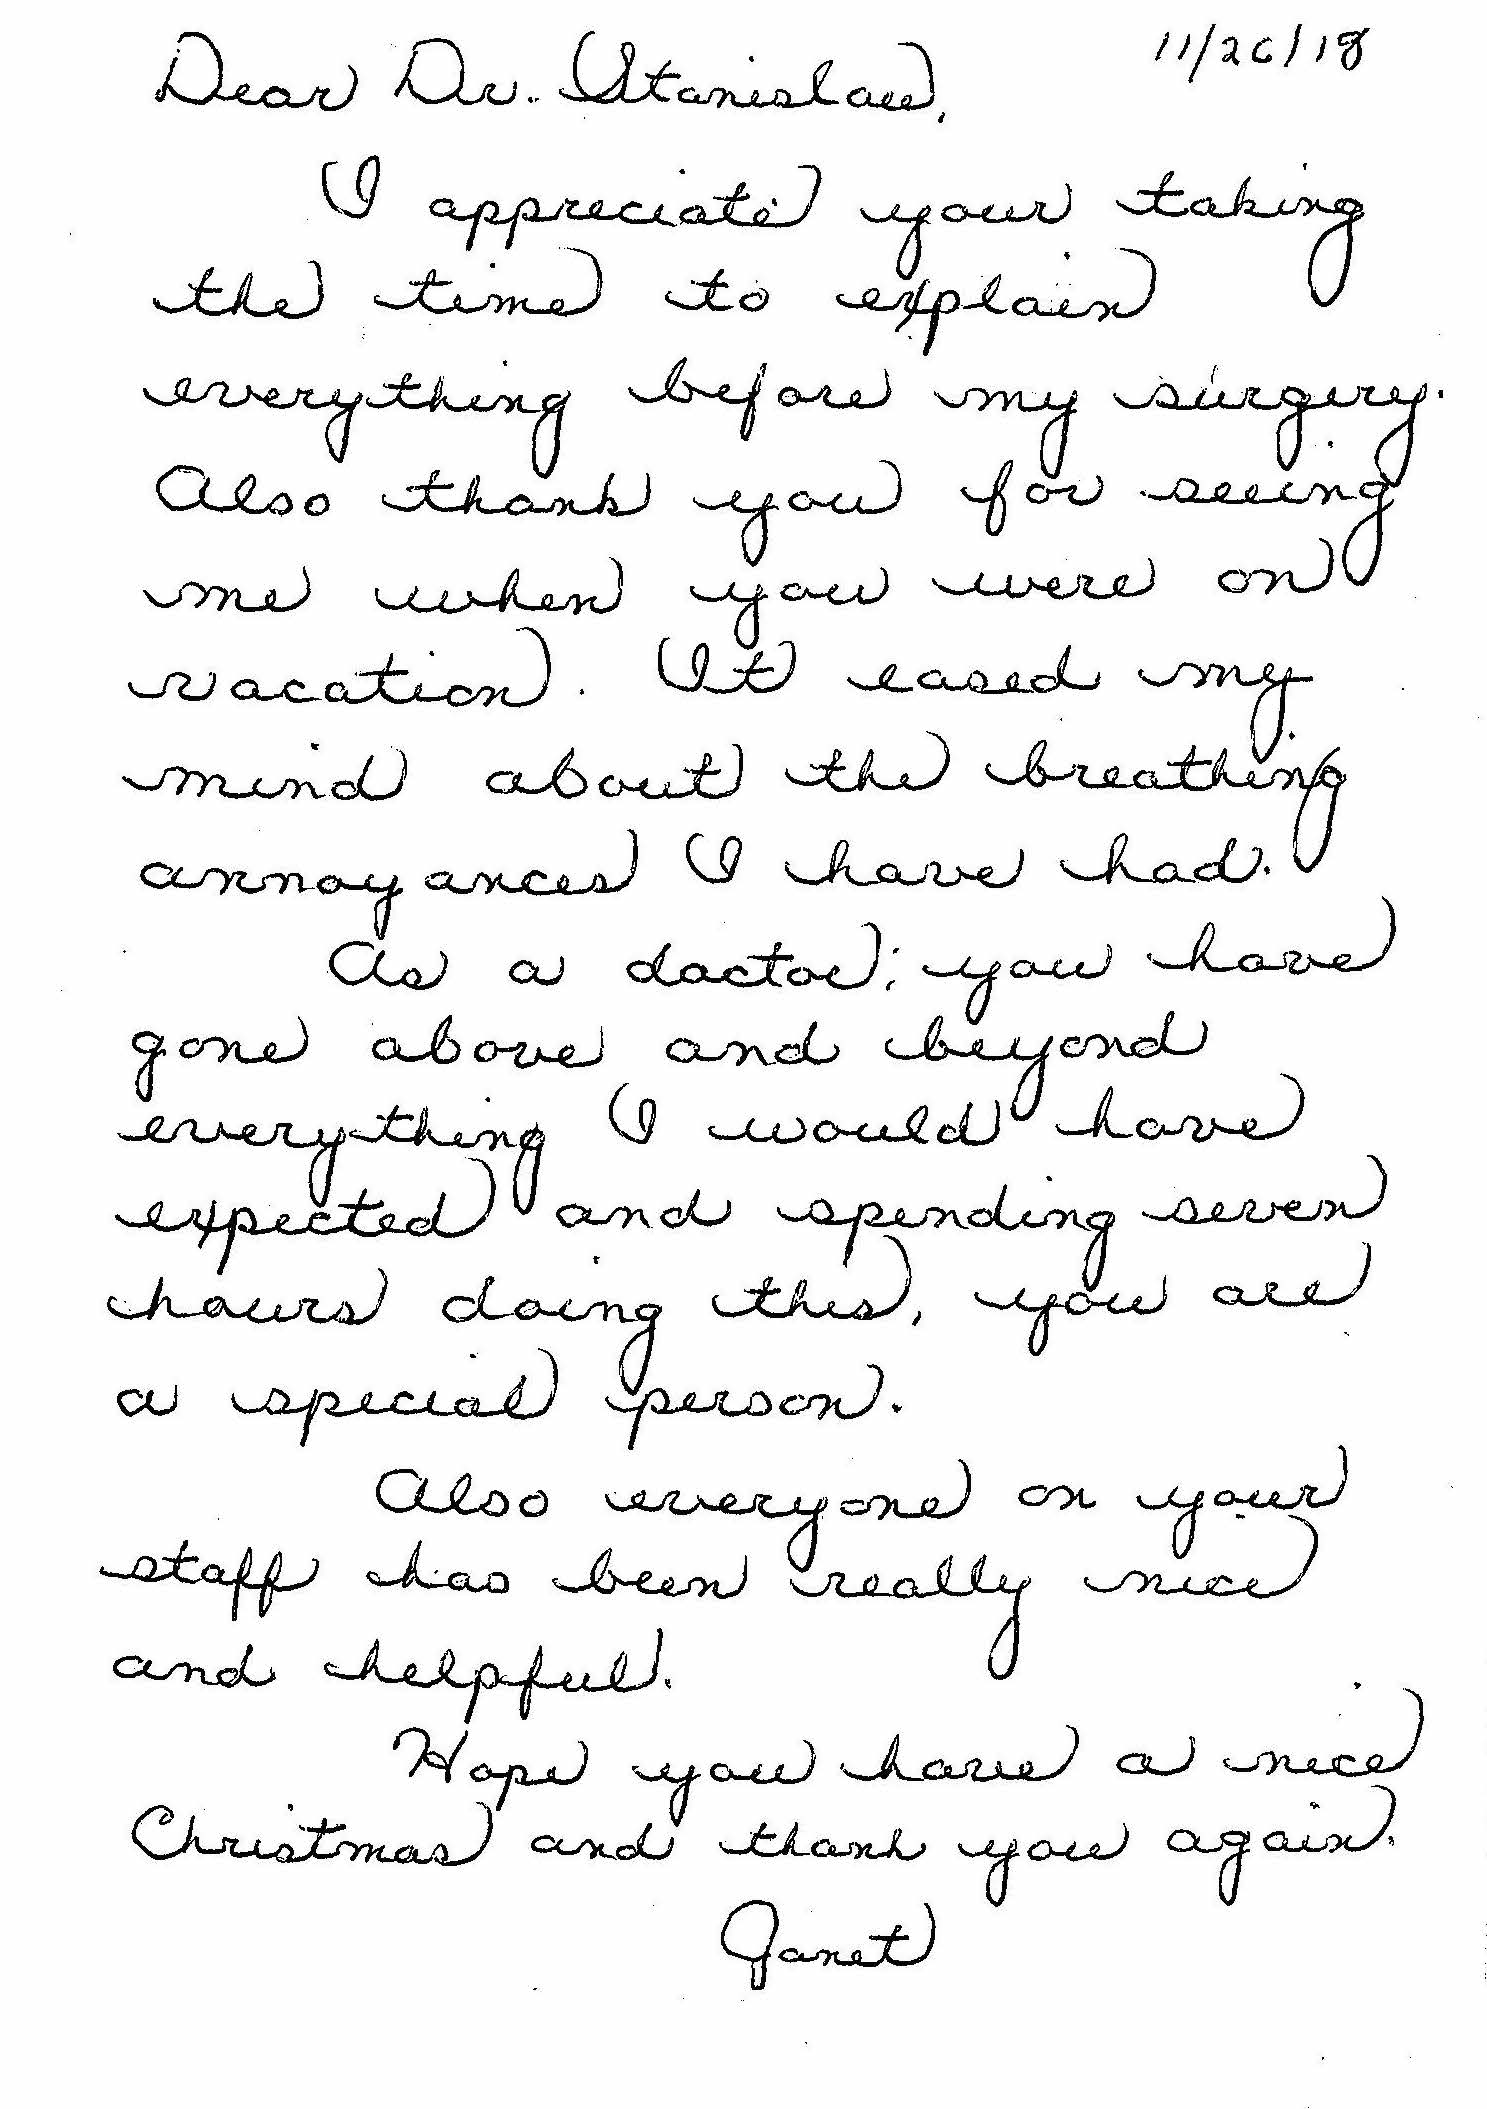 11/26/18
Dear Dr. Stanislaw,
I appreciate your taking
the time to explain
everything before my surgery.
Also thank you for seeing
me when you were on
vacation. It eased my
mind about the breathing
annoyances I have had.
As a doctor, you have
gone above and beyond
everything I would have
expected and spending seven
hours doing this, you are
a special person.
Also everyone on your
staff has been really nice
and helpful.
Hope you have a nice
Christmas and thank you again.
Janet